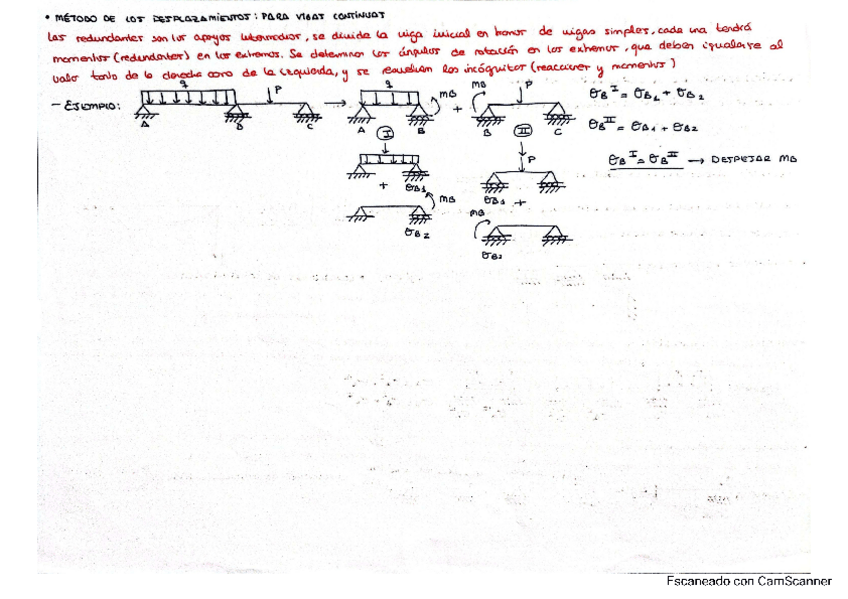 • MÉTODO DE LOS DESPLAZAMIENTOS: PARA VIGAS CONTINUAS
Las redundantes son los apoyos intermedios, se divide la viga inicial en de vigas simples, cada una tendrá
momentos (redundantes) en los extremos. Se determinan los ángulos de rotación en los extremos, que deben igualarse al
valor tanto de la derecha como de la izquierda, y se resuelven las incógnitas (reacciones y momentos)
- EJEMPLO: q P A B C → q MB A B I + MB P B C II θB^I = θB1 + θB2
θB^II = θB1 + θB2
θB^I = θB^II → DESPEJAR MB
+ θB1 P θB1 +
MB θB2 MB θB2
Escaneado con CamScanner